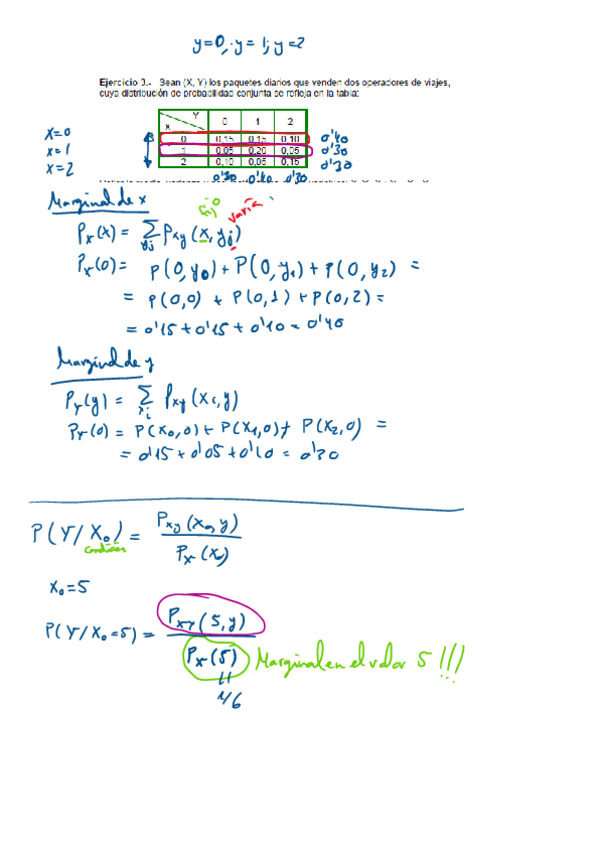 y=0, y=1; y=2
Ejercicio 3.- Sean (X, Y) los paquetes diarios que venden dos operadores de viajes,
cuya distribución de probabilidad conjunta se refleja en la tabla:
X Y 0 1 2
x=0 0 0,15 0,15 0,10 0'40
x=1 1 0,05 0,20 0,05 0'30
x=2 2 0,10 0,05 0,15 0'30
0'30 0'40 0'30
Marginal de x
fijo varía
Px(x) = Σyj Pxy(x, yj)
Px(0) = P(0,y0) + P(0,y1) + P(0,y2) =
= P(0,0) + P(0,1) + P(0,2) =
= 0'15 + 0'15 + 0'10 = 0'40
Marginal de y
Py(y) = Σxi Pxy(xi,y)
Py(0) = P(x0,0) + P(x1,0) + P(x2,0) =
= 0'15 + 0'05 + 0'10 = 0'30
P(Y/X0) = Pxy(x0,y) / Px(x0)
condición
X0=5
P(Y/X0=5) = Pxy(5,y) / Px(5) Marginal en el valor 5 !!!
11
1/6